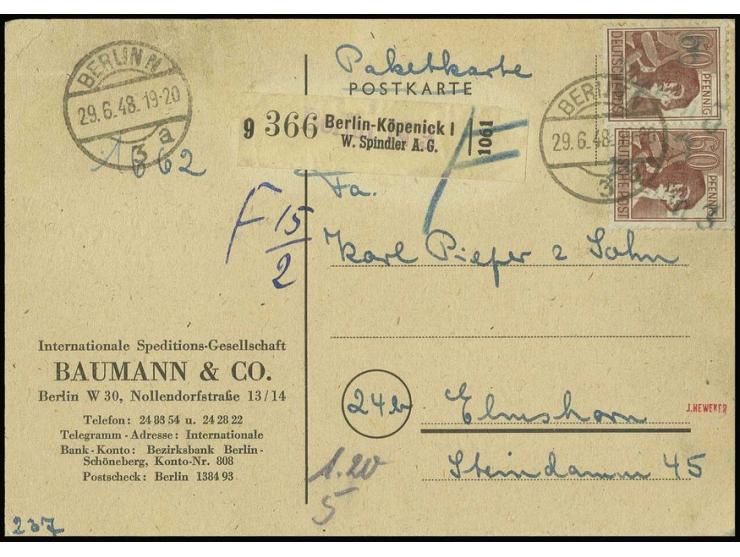 BERLIN N
29.6.48.19-20
3 a
1662
Paketkarte
POSTKARTE
9 366 Berlin-Köpenick I
W. Spindler A. G.
1061
BERLIN
29.6.48
3
60
PFENNIG
DEUTSCHE POST
60
PFENNIG
DEUTSCHE POST
F 15/2
Fa.
Karl Pieper & Sohn
24b
Elmshorn
Steindamm 45
J.HEWEKER
Internationale Speditions-Gesellschaft
BAUMANN & CO.
Berlin W 30, Nollendorfstraße 13/14
Telefon: 24 83 54 u. 24 28 22
Telegramm-Adresse: Internationale
Bank-Konto: Bezirksbank Berlin-
Schöneberg, Konto-Nr. 808
Postscheck: Berlin 1384 93
1.20
5
237